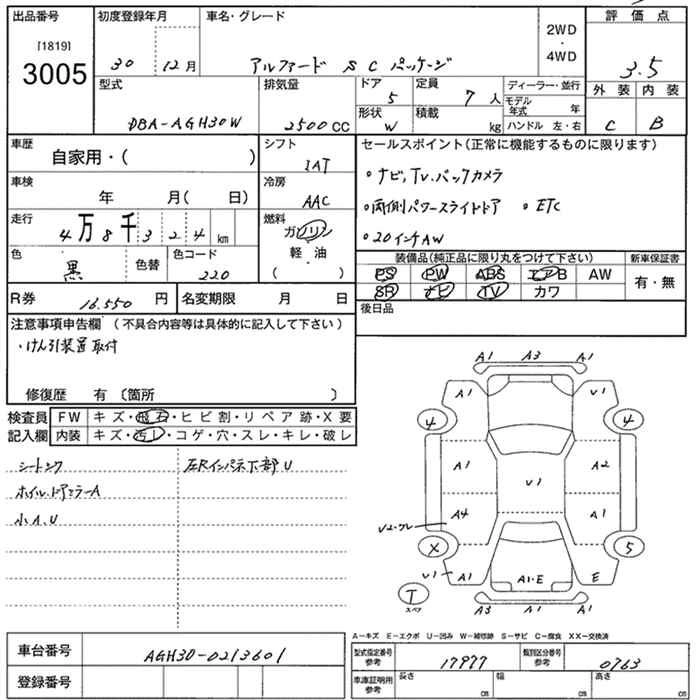 出品番号
[1819]
3005
初度登録年月
30 12月
車名・グレード
アルファード SCパッケージ
2WD
・
4WD
評価点
3.5
外装 内装
C B
型式
DBA-AGH30W
排気量
2500CC
ドア
5
定員
7人
形状
W
積載
kg
ディーラー・並行
モデル年式 年
ハンドル 左・右
車歴
自家用・( )
シフト
IAT
セールスポイント(正常に機能するものに限ります)
・ナビ,TV.バックカメラ
・両側パワースライドドア ・ETC
・20インチAW
車検
年 月( 日)
冷房
AAC
走行
4万8千324km
燃料
ガソリン
軽・油
( )
色
黒
色替
色コード
220
装備品(純正品に限り丸をつけて下さい)
新車保証書
PS PW ABS エアB AW
有・無
SR ナビ TV カワ
R券
16.550円
名変期限 月 日
後日品
注意事項申告欄(不具合内容等は具体的に記入して下さい)
・けん引装置取付
修復歴 有 〔箇所 〕
検査員
記入欄
FW キズ・飛石・ヒビ割・リペア跡・X要
内装 キズ・汚レ・コゲ・穴・スレ・キレ・破レ
ホイル.ドアミラーA
小A.U
左Rインパネ下部U
A1 A3 A1
A1 V1
4 4
A1 V1 A2
A4 A1
V2-ワレ
X 5
V1 A1 A1.E E
T
スペア
A3 A1 A1
A−キズ E−エクボ U−凹み W−補修跡 S−サビ C−腐食 XX−交換済
車台番号
AGH30-0213601
登録番号
型式指定番号
参考
17977
類別区分番号
参考
0763
車庫証明用
参考
長さ cm
幅 cm
高さ cm